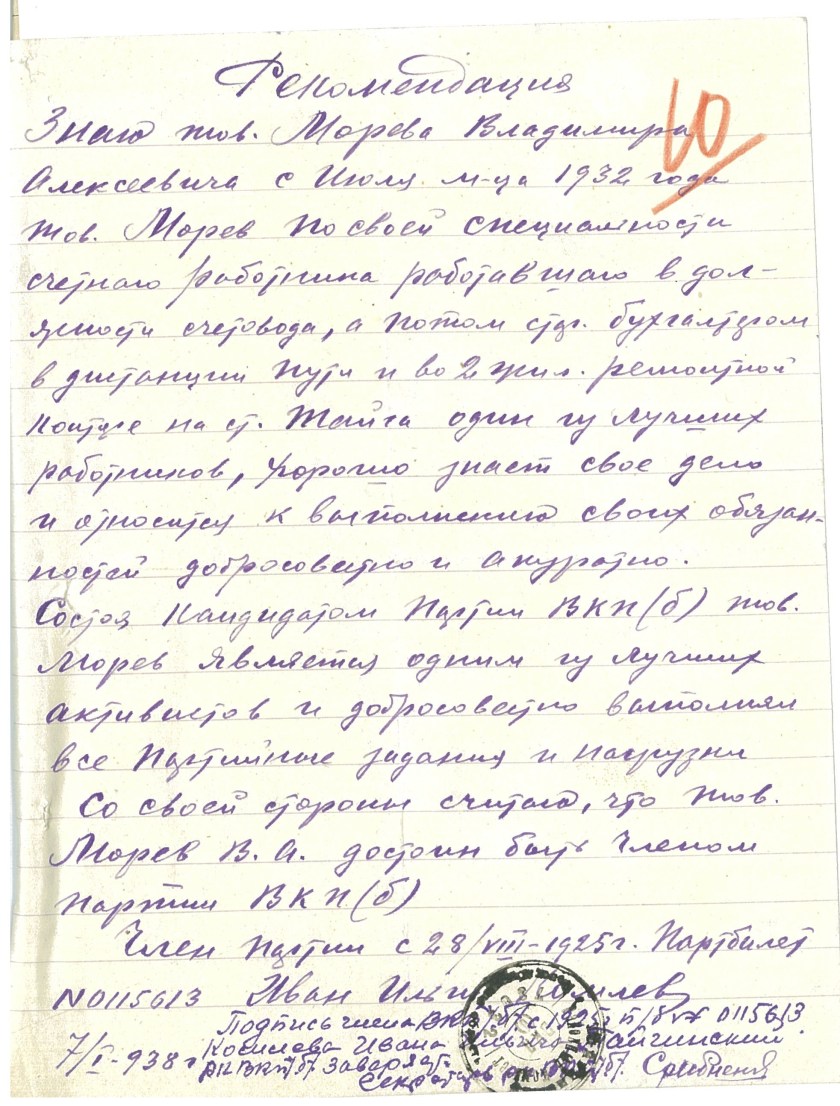 Рекомендация
60
Знаю тов. Морева Владимира
Алексеевича с Июля м-ца 1932 года
тов. Морев по своей специальности
счетного работника работавшаго в дол-
жности счетовода, а потом стар. бухгалтером
в дистанции пути и во 2 жил. ремонтной
конторе на ст. Тайга один из лучших
работников, хорошо знает свое дело
и относится к выполнению своих обязан-
ностей добросовестно и акуратно.
Состоя Кандидатом Партии ВКП(б) тов.
Морев является одним из лучших
активистов и добросовестно выполнял
все Партийные задания и нагрузки
Со своей стороны считаю, что тов.
Морев В.А. достоин быть Членом
партии ВКП(б)
Член партии с 28/VIII-1925 г. Партбилет
N 0115613 Иван Ильич
Подпись члена с 1925 п/б N 0115613
7/I-938 г Ивана Тайгинский
РК ВКП/б/. Заверяет.
Секретарь РК ВКП/б/.